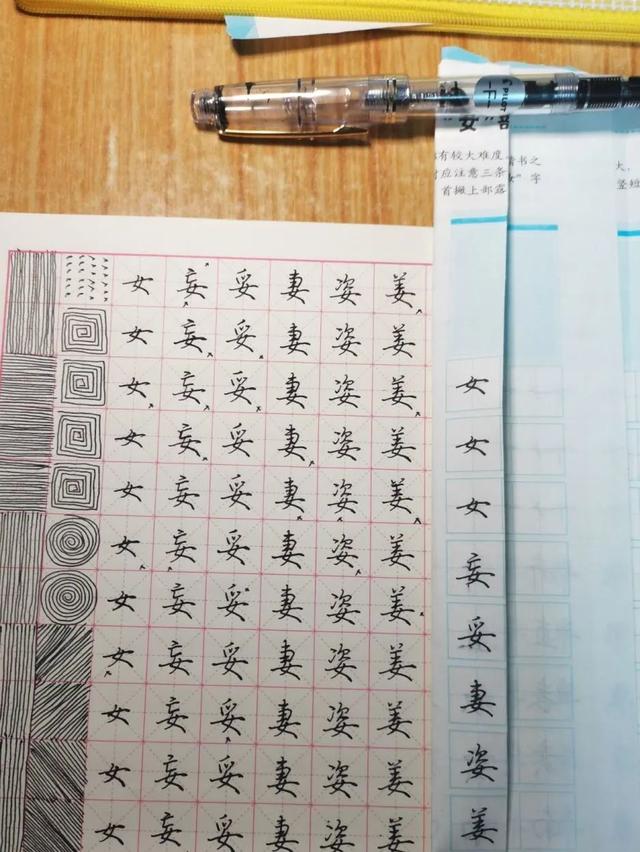 PILOT
有较大难度
应注意三条
首撇上部露
书之
女”字
大，
竖短
女 妄 妥 妻 姿 姜
女 妄 妥 妻 姿 姜
女 妄 妥 妻 姿 姜
女 妄 妥 妻 姿 姜
女 妄 妥 妻 姿 姜
女 妄 妥 妻 姿 姜
女 妄 妥 妻 姿 姜
女 妄 妥 妻 姿 姜
女 妄 妥 妻 姿 姜
女 妄 妥 妻 姿 姜
女 妄 妥 妻 姿 姜
女
女
女
妄
妥
妻
姿
姜